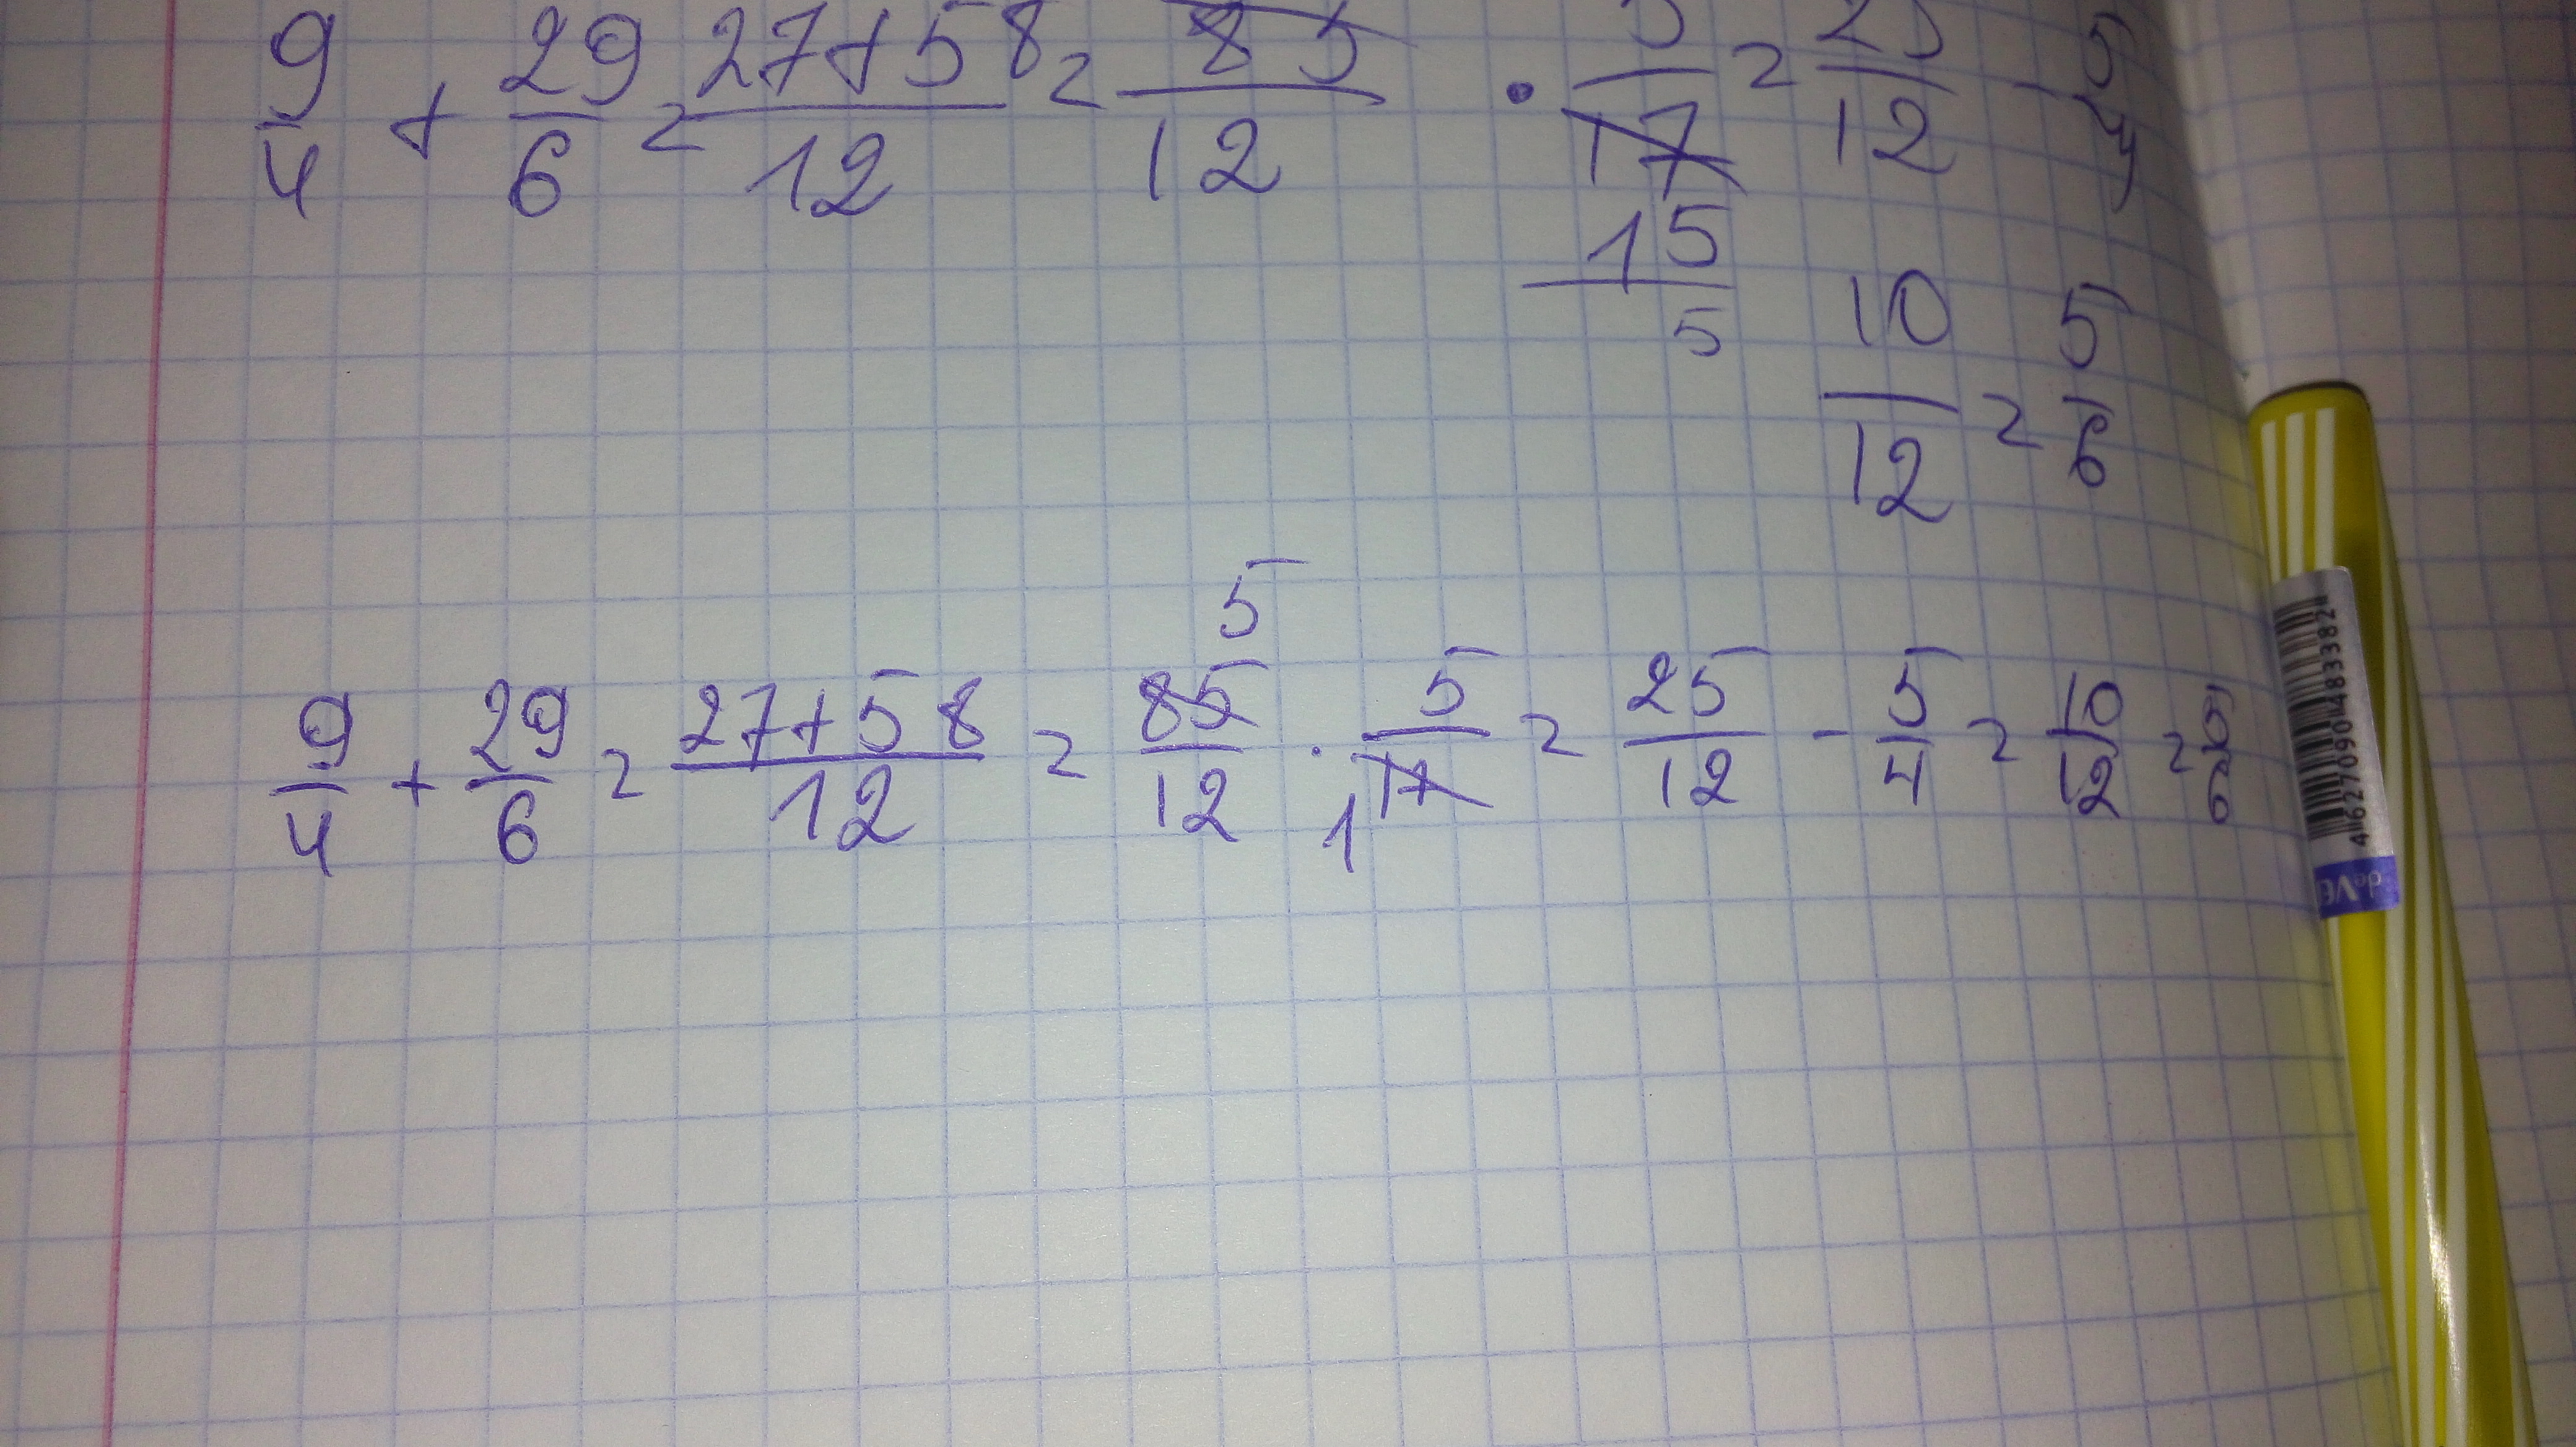 9/4 + 29/6 = 27+58/12 = 85/12 · 5/17 = 25/12 - 5/4
15
5
10/12 = 5/6
5
9/4 + 29/6 = 27+58/12 = 85/12 · 5/17 = 25/12 - 5/4 = 10/12 = 5/6
1
4627090483382
deVE